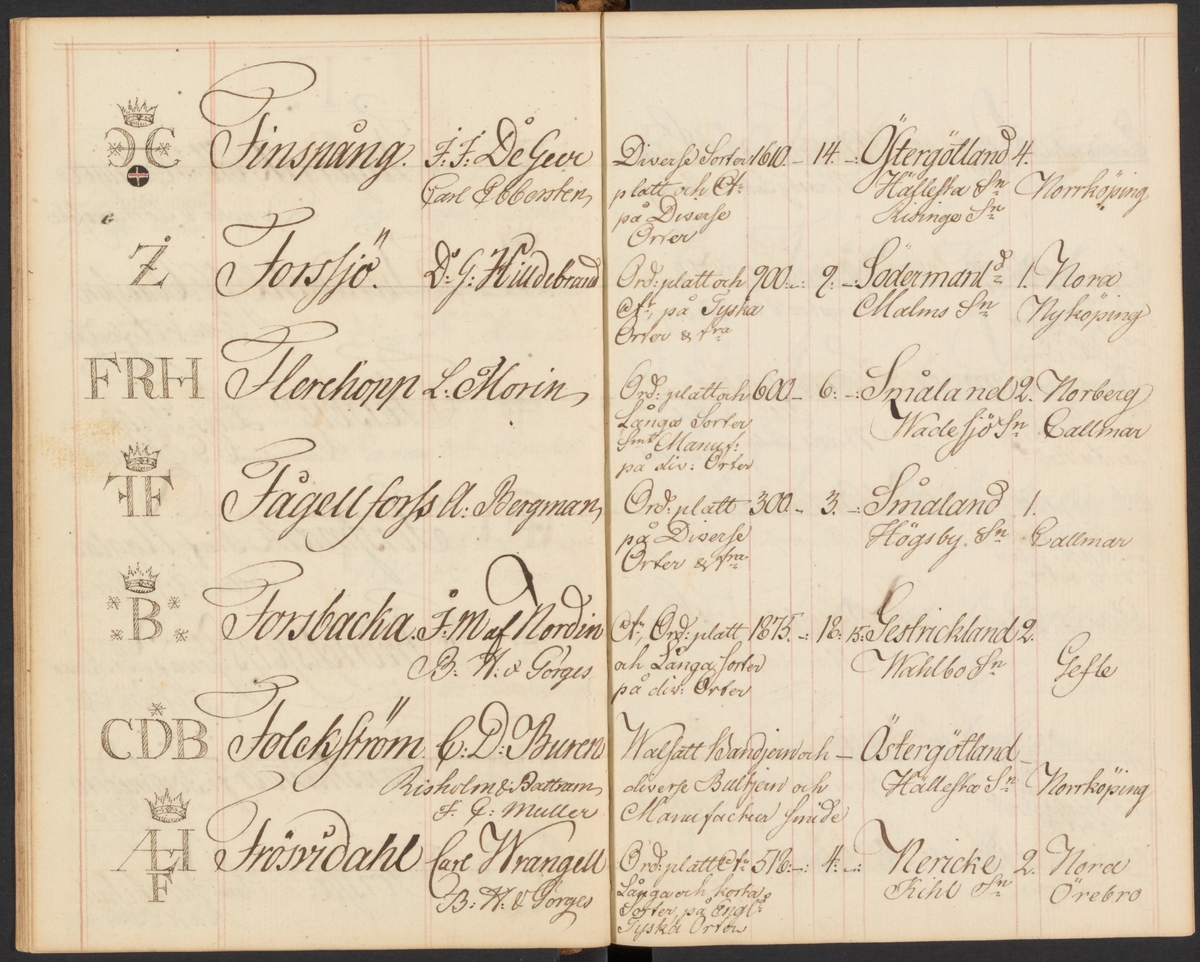 Finspång. J: J: De Geer Diverse Sorter 1610.- 14. -. Östergötland 4.
Carl Ebbersten platt och Hällesta Sn Norrköping
på Diverse Risinge Sn
Orter
Z Forssjö. D: G: Hilldebrand Ord: platt och 900:-: 9: - Södermanld 1. Nora
på Tyska Malms Sn Nyköping
Orter & fra
FRH Flerehopp L. Morin Ord: platt och 600.- 6: -: Småland 2. Norberg
Långa Sorter Wadesjö Sn Callmar
Smt Manuf:
på div: Orter
FF Fågellforss A: Bergman Ord: platt 300.- 3. -: Småland 1.
på Diverse Högsby. Sn Callmar
Orter & fra
B Forsbacka. J: M af Nordin Ord: platt 1875. -: 18: 15: Gestrickland 2.
B: H: & Görges och Långa Sorter Wahlbo Sn Gefle
på div: Orter
CDB Folckström C: D: Buren Walsatt Bandjern och - Östergötland
Risholm & Battram diverse Bultjern och Hällesta Sn Norrköping
F. G: Muller Manufactur Smide
ALH Frösvidahl Carl Wrangell Ord: platt 518:-: 4: -: Nericke 2. Nora
F B: H: & Görges Långa och korta Kihl Sn Örebro
Sorter på Engl:
Tyska Orter